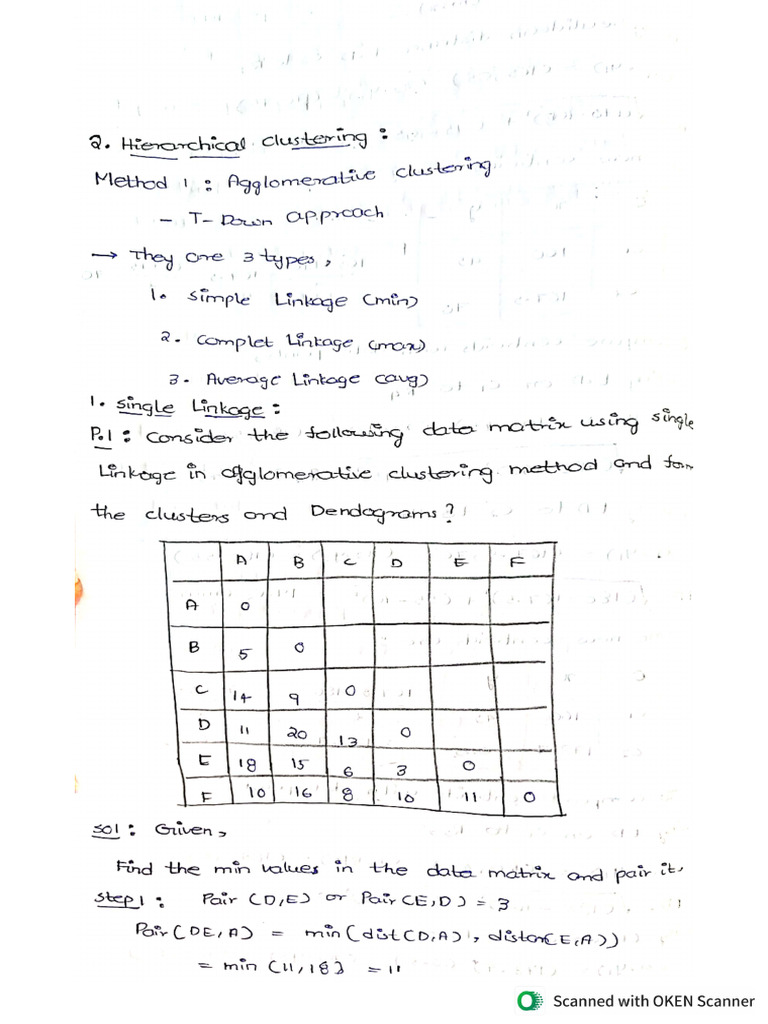 2. Hierarchical clustering :
Method 1 : Agglomerative clustering
- T-Down approach
→ They are 3 types,
1. Simple Linkage (min)
2. Complet Linkage (max)
3. Average Linkage (avg)
1. Single Linkage :
P.1 : Consider the following data matrix using single
Linkage in agglomerative clustering method and form
the clusters and Dendograms?
A B C D E F
A 0
B 5 0
C 14 9 0
D 11 20 13 0
E 18 15 6 3 0
F 10 16 8 10 11 0
Sol : Given,
Find the min values in the data matrix and pair it,
Step 1 : Pair (D,E) or Pair(E,D) = 3
Pair(DE,A) = min(dist(D,A), distan(E,A))
= min (11,18) = 11
Scanned with OKEN Scanner